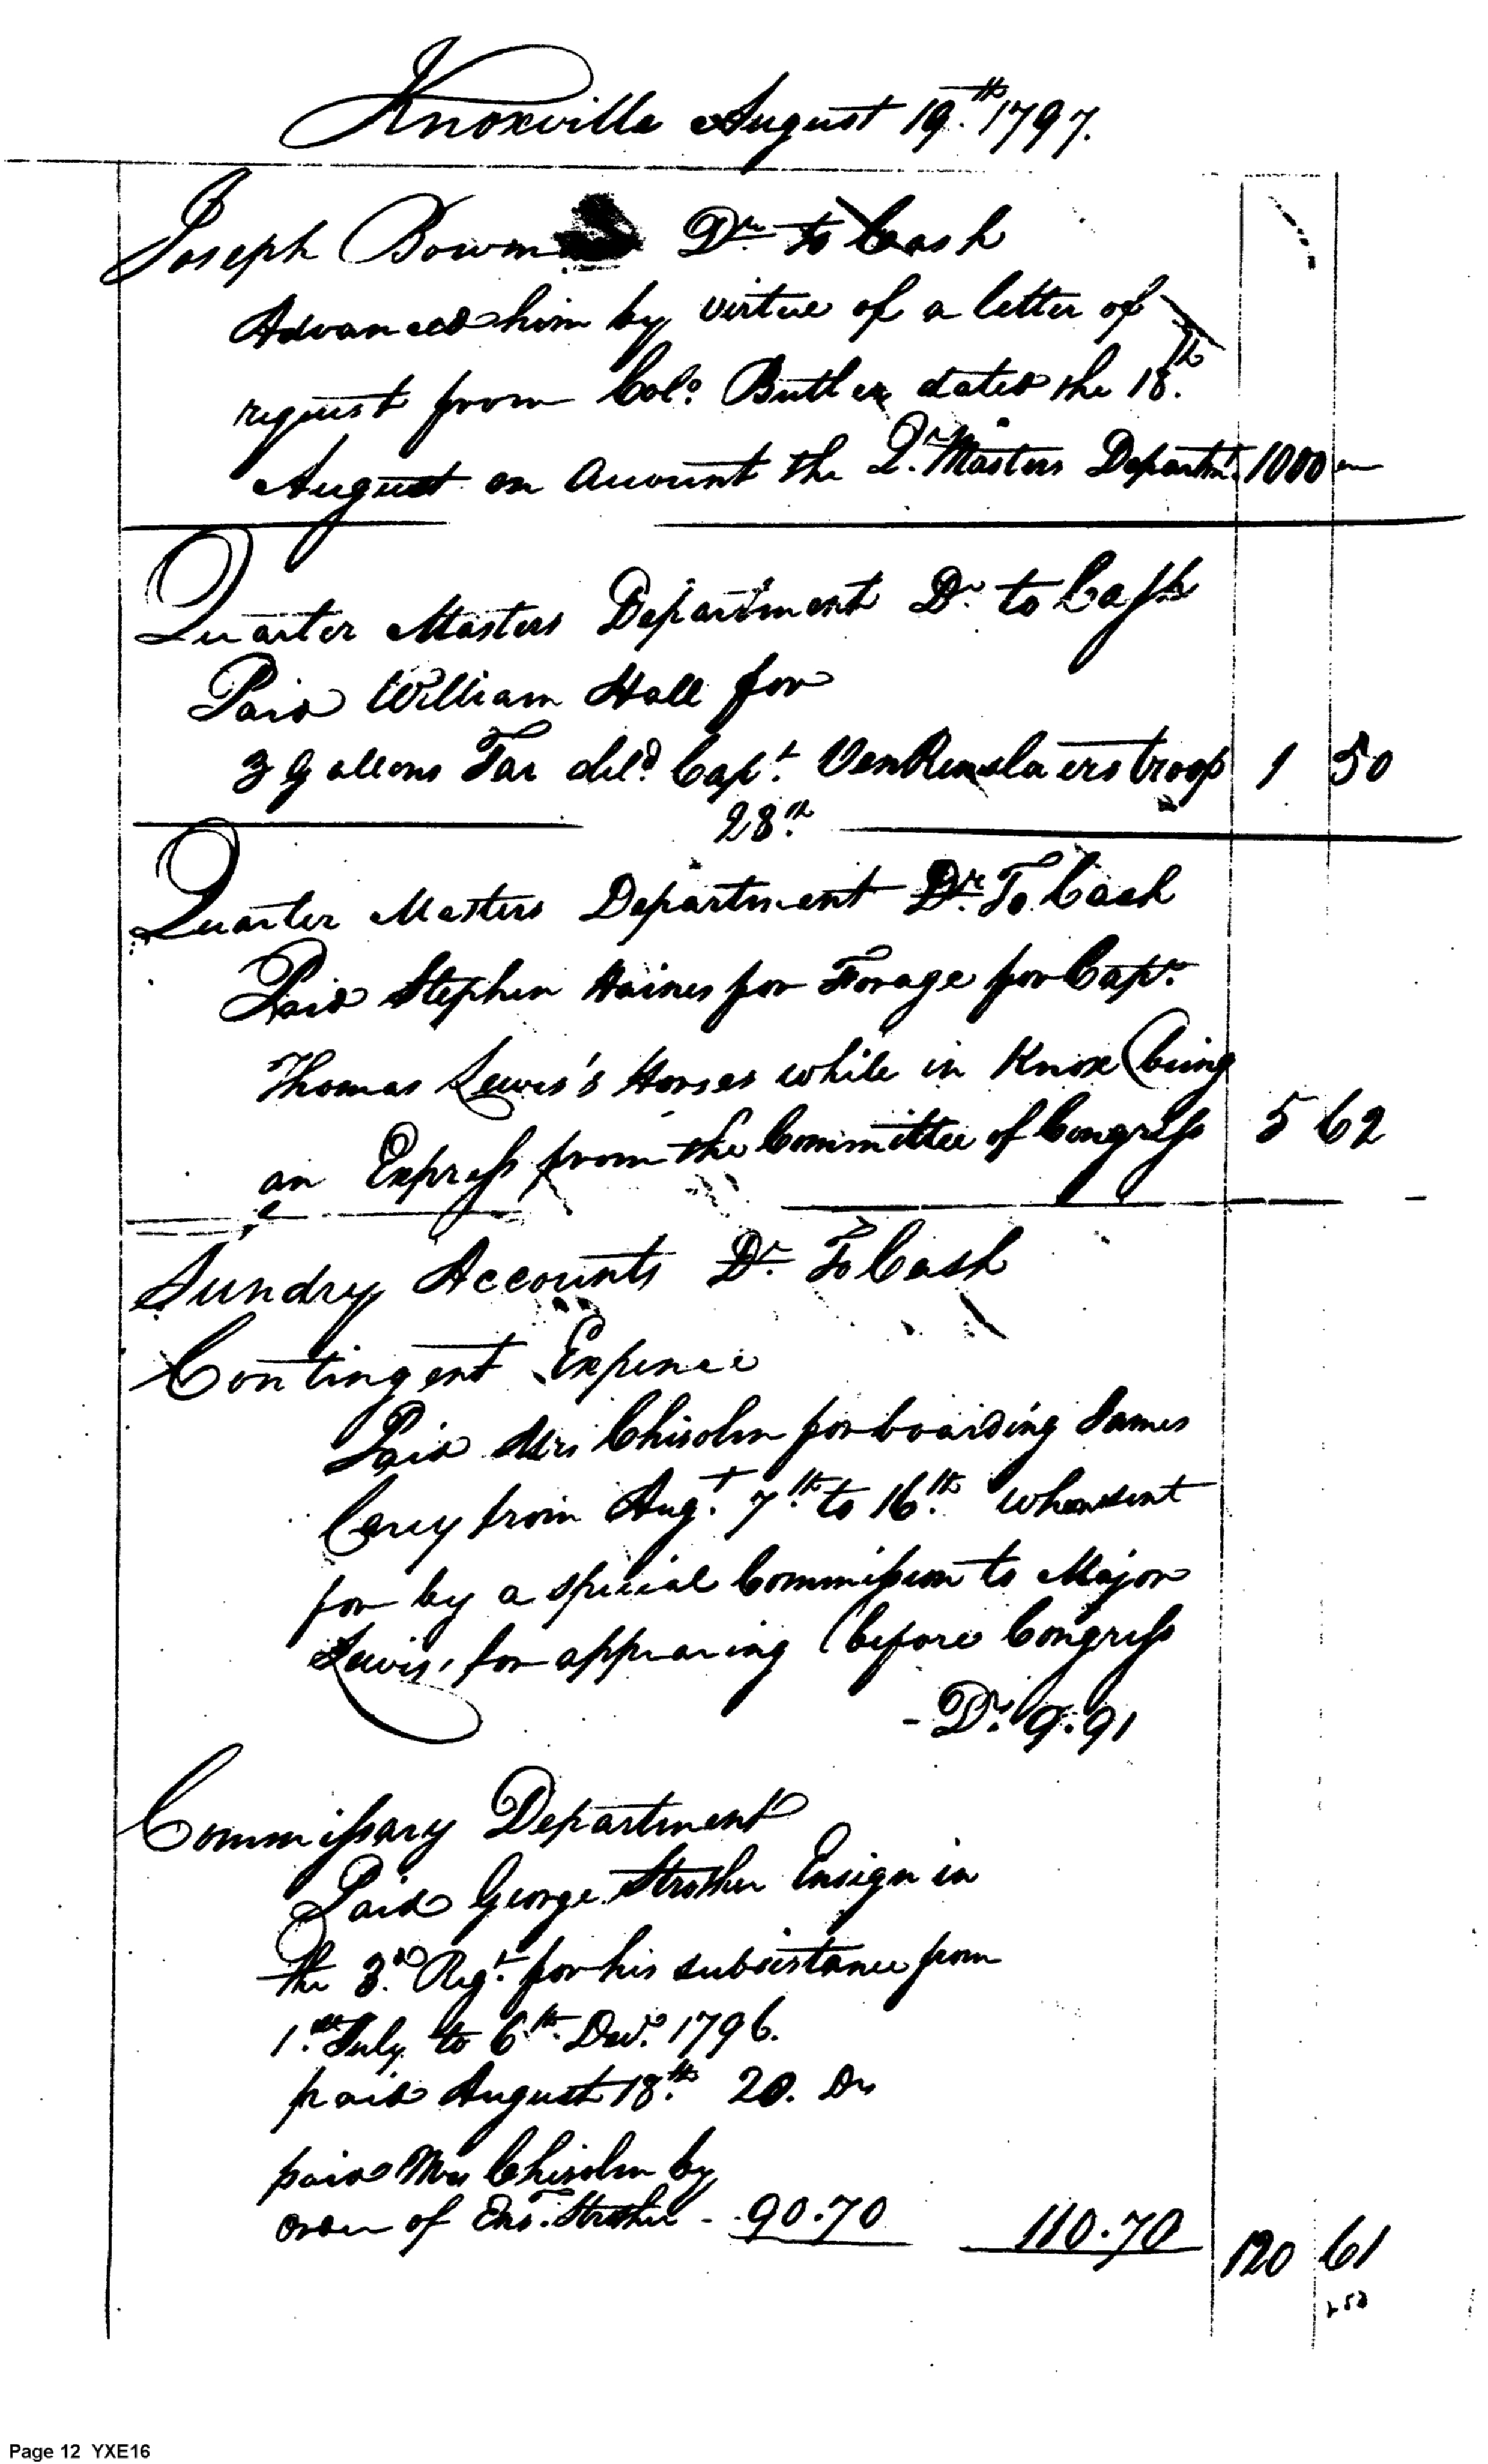 Knoxville August 19.th 1797.
Joseph Bowm Dr to Cash
Advanced him by virtue of a letter of
request from Colo. Butler dated the 18.th
August on Account the Qr. Masters Departmt. 1000 "
Quarter Masters Department Dr. to Cash
Paid William Hall for
3 Gallons Tar deld. Capt. VanRenslaers troop 1 50
28th.
Quarter Masters Department Dr. To Cash
Paid Stephen Haines for Forage for Capt.
Thomas Lewis's Horses while in Knox (being
an Express from the Committee of Congress 5 62
Sundry Accounts Dr. To Cash
Contingent Expence
Paid Mrs Chisolm for boarding James
Carey from Augt. 7th. to 16th. when sent
for by a special Commission to Major
Lewis, for appearing (before Congress
- Dr. 9.91
Commissary Department
Paid George Strother Ensign in
the 3d. Regt. for his subsistance from
1.st July to 6th. Decr. 1796.
paid August 18.th 20. Drs
paid Mrs Chisolm by
order of Ens. Strother - 90.70 110.70 120 61